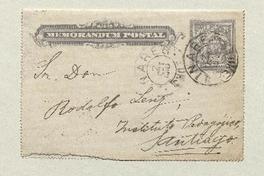 MEMORANDUM POSTAL
Sr. Don
Rodolfo Lenz
Instituto Pedagójico,
Santiago